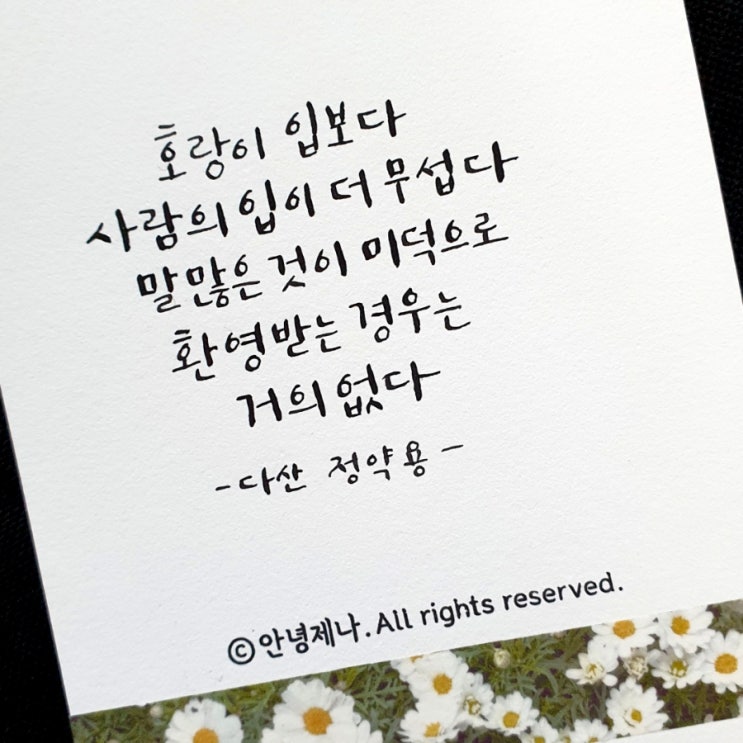 호랑이 입보다
사람의 입이 더 무섭다
말 많은 것이 미덕으로
환영받는 경우는
거의 없다
- 다산 정약용 -
©안녕제나. All rights reserved.